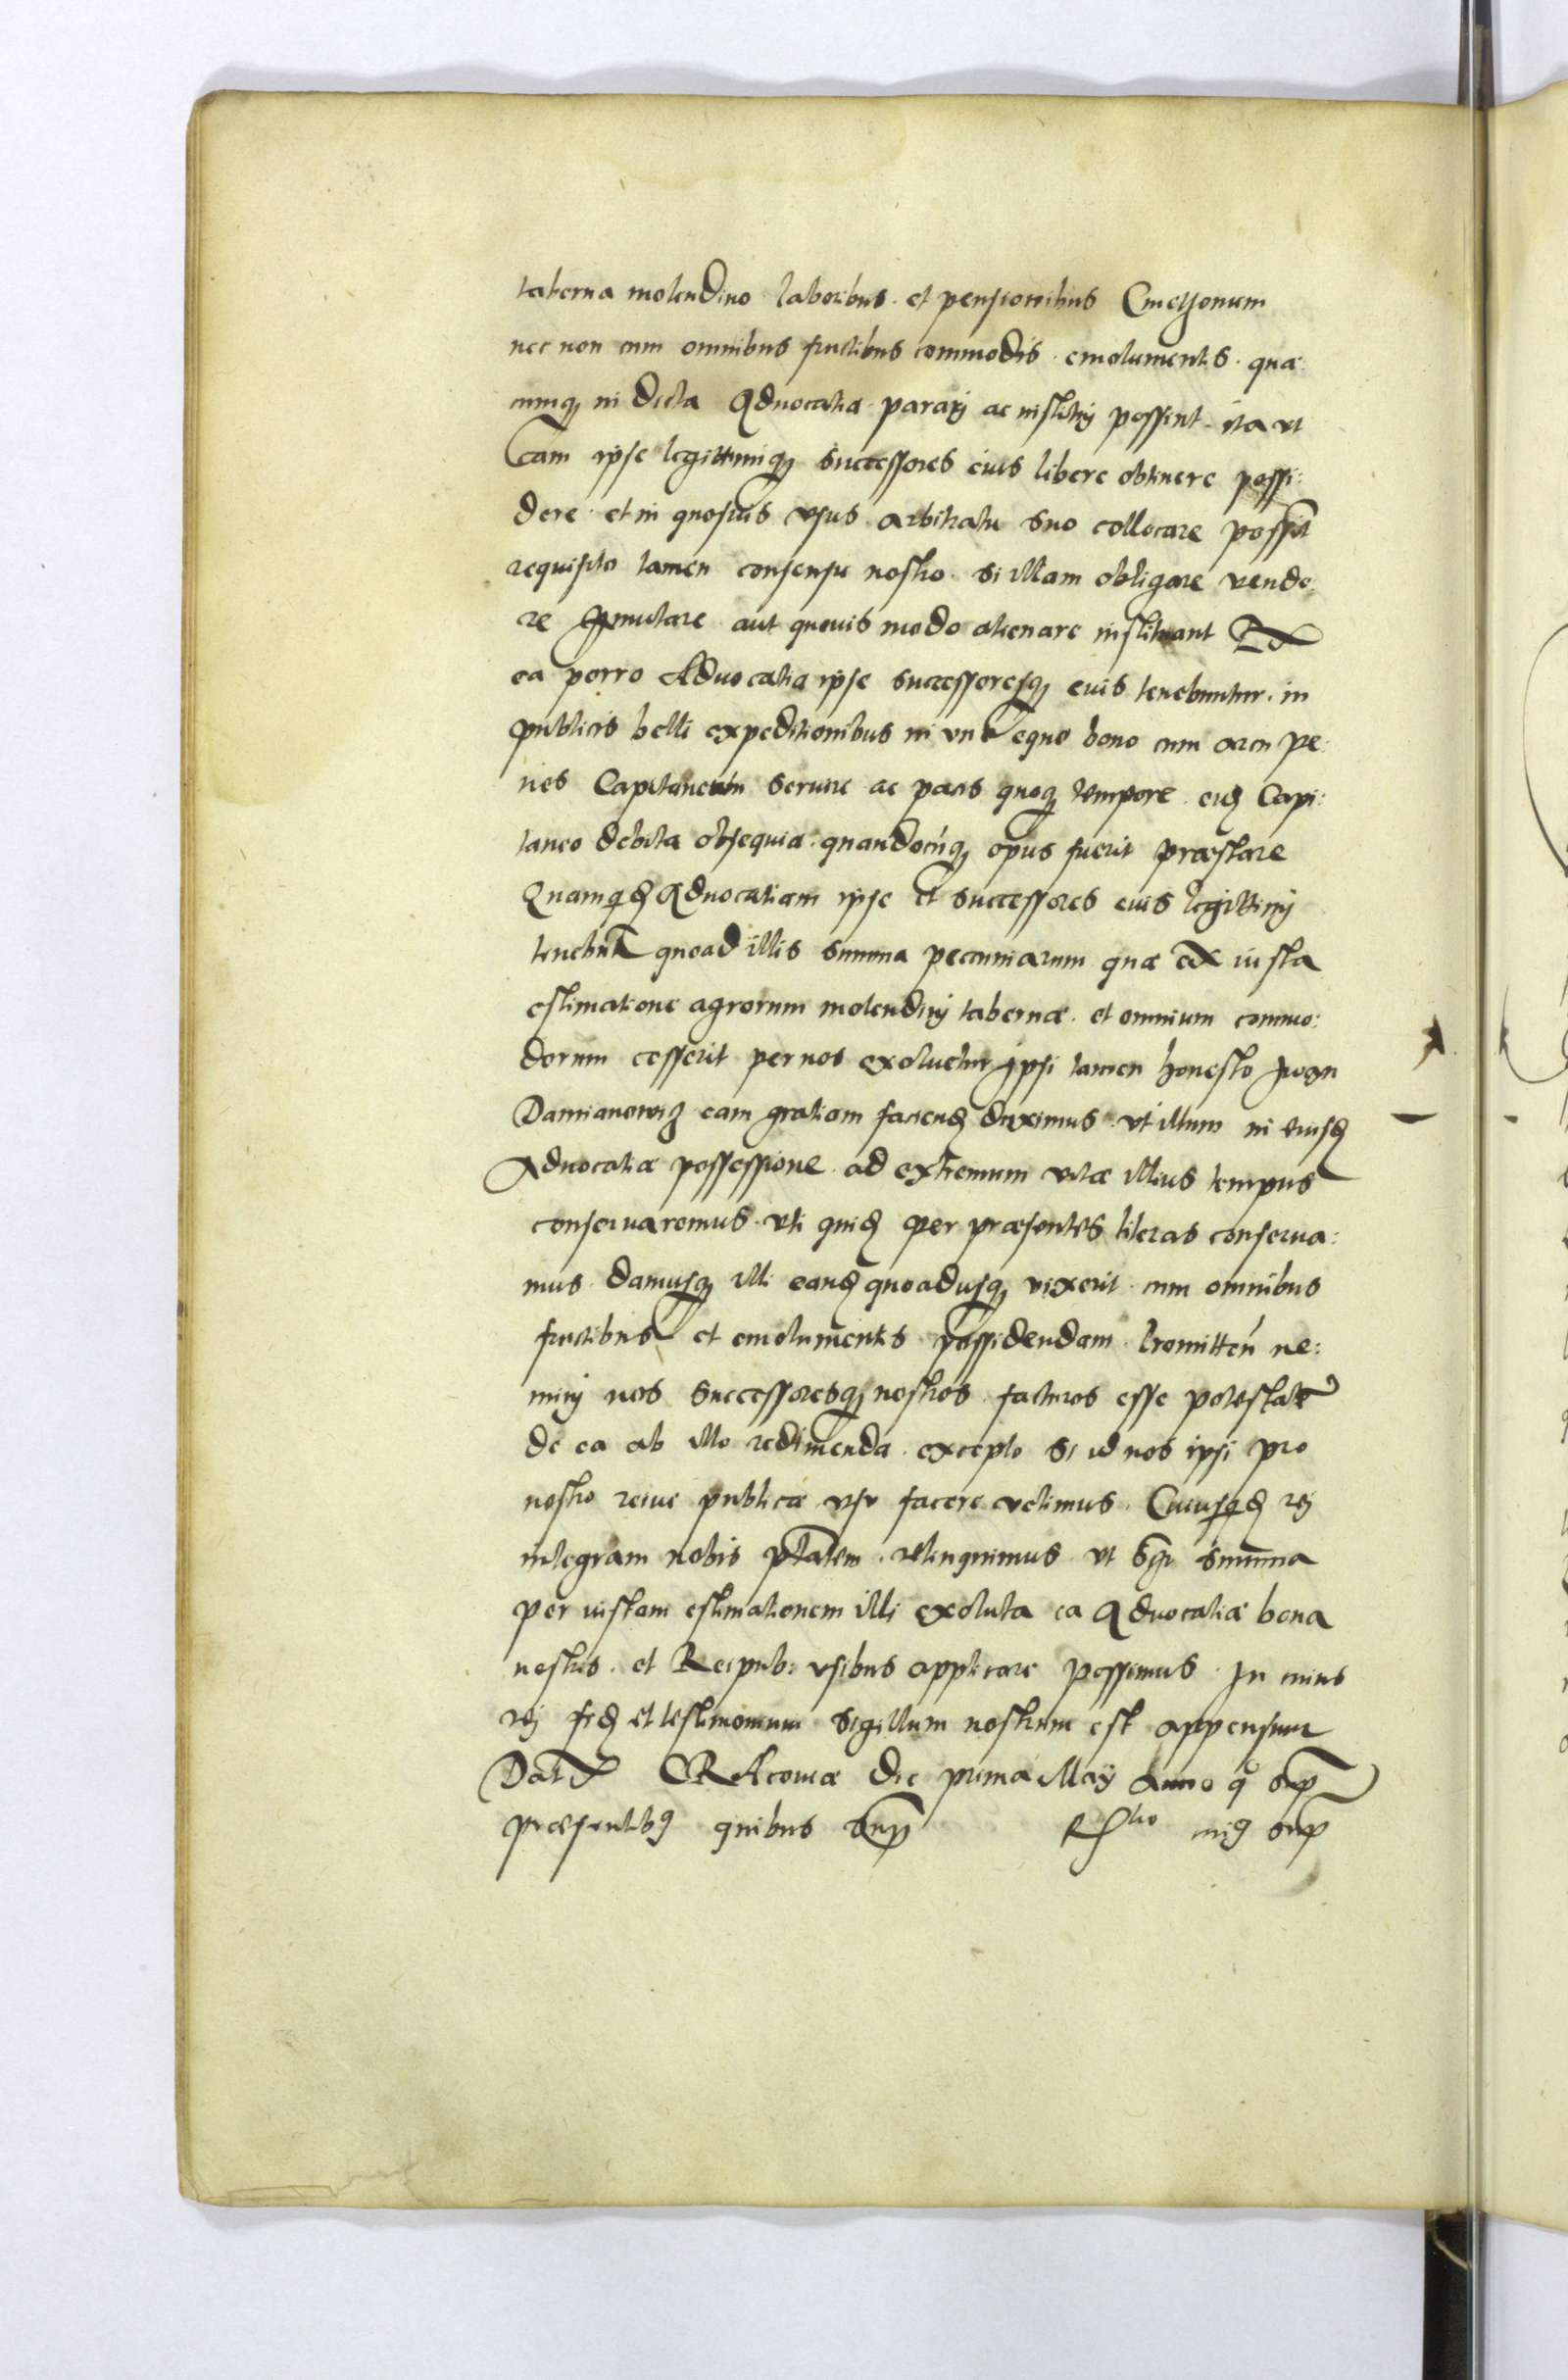 taberna molendino laboribus et pensionibus Cmethonum
nec non cum omnibus fructibus commodis emolumentis quæ
cunq₃ in dicta Aduocatia pararj ac institui possent ita vt
Eam ipse legittimiq₃ successores eius libere obtinere possi:
dere et in quosuis vsus arbitratu suo collocare possint
requisito tamen consensu nostro si illam obligare vende
re commutare aut quouis modo alienare instituant Ex
ea porro Aduocatia ipse successoresq₃ eius tenebuntur in
publicis belli expeditionibus in vno equo bono cum arcu pe:
nes Capitaneum seruire ac pacis quoq₃ tempore eid Capi:
taneo debita obsequia quandocūq₃ opus fuerit præstare
Quamq̃d Aduocatiam ipse et successores eius legittimj
tenebūt quoad illis summa pecuniarum quæ ex iusta
estimatione agrorum molendinj tabernæ et omnium commo:
dorum cesserit per nos exoluetur Ipsi tamen honesto Iwan
Damianowicz eam gratiam faciend duximus vt illum in eiusd
Aduocatiæ possessione ad extremum vitæ illius tempus
conseruaremus vti quid per præsentes literas conserua:
mus damusq₃ illi eand quoadusq₃ vixerit cum omnibus
fructibus et emolumentis possidendam Promitteñ ne:
minj nos successoresq₃ nostros facturos esse potestatē
de ea ab illo redimenda excepto si id nos ipsi pro
nostro reiue publicæ vsu facere velimus Cuiusq̃d rej
integram nobis ptatem relinquimus vt sem̃p summa
per iustam estimationem illi exoluta ea Aduocatiæ bona
nostris et Reipub: vsibus applicare possimus In cuius
rej fid et testimonium sigillum nostrum est appensum
Dat CRAcouiæ die prima Maÿ Anno q° sup
præsentib9 quibus sup R<sup>tio</sup> eius sup